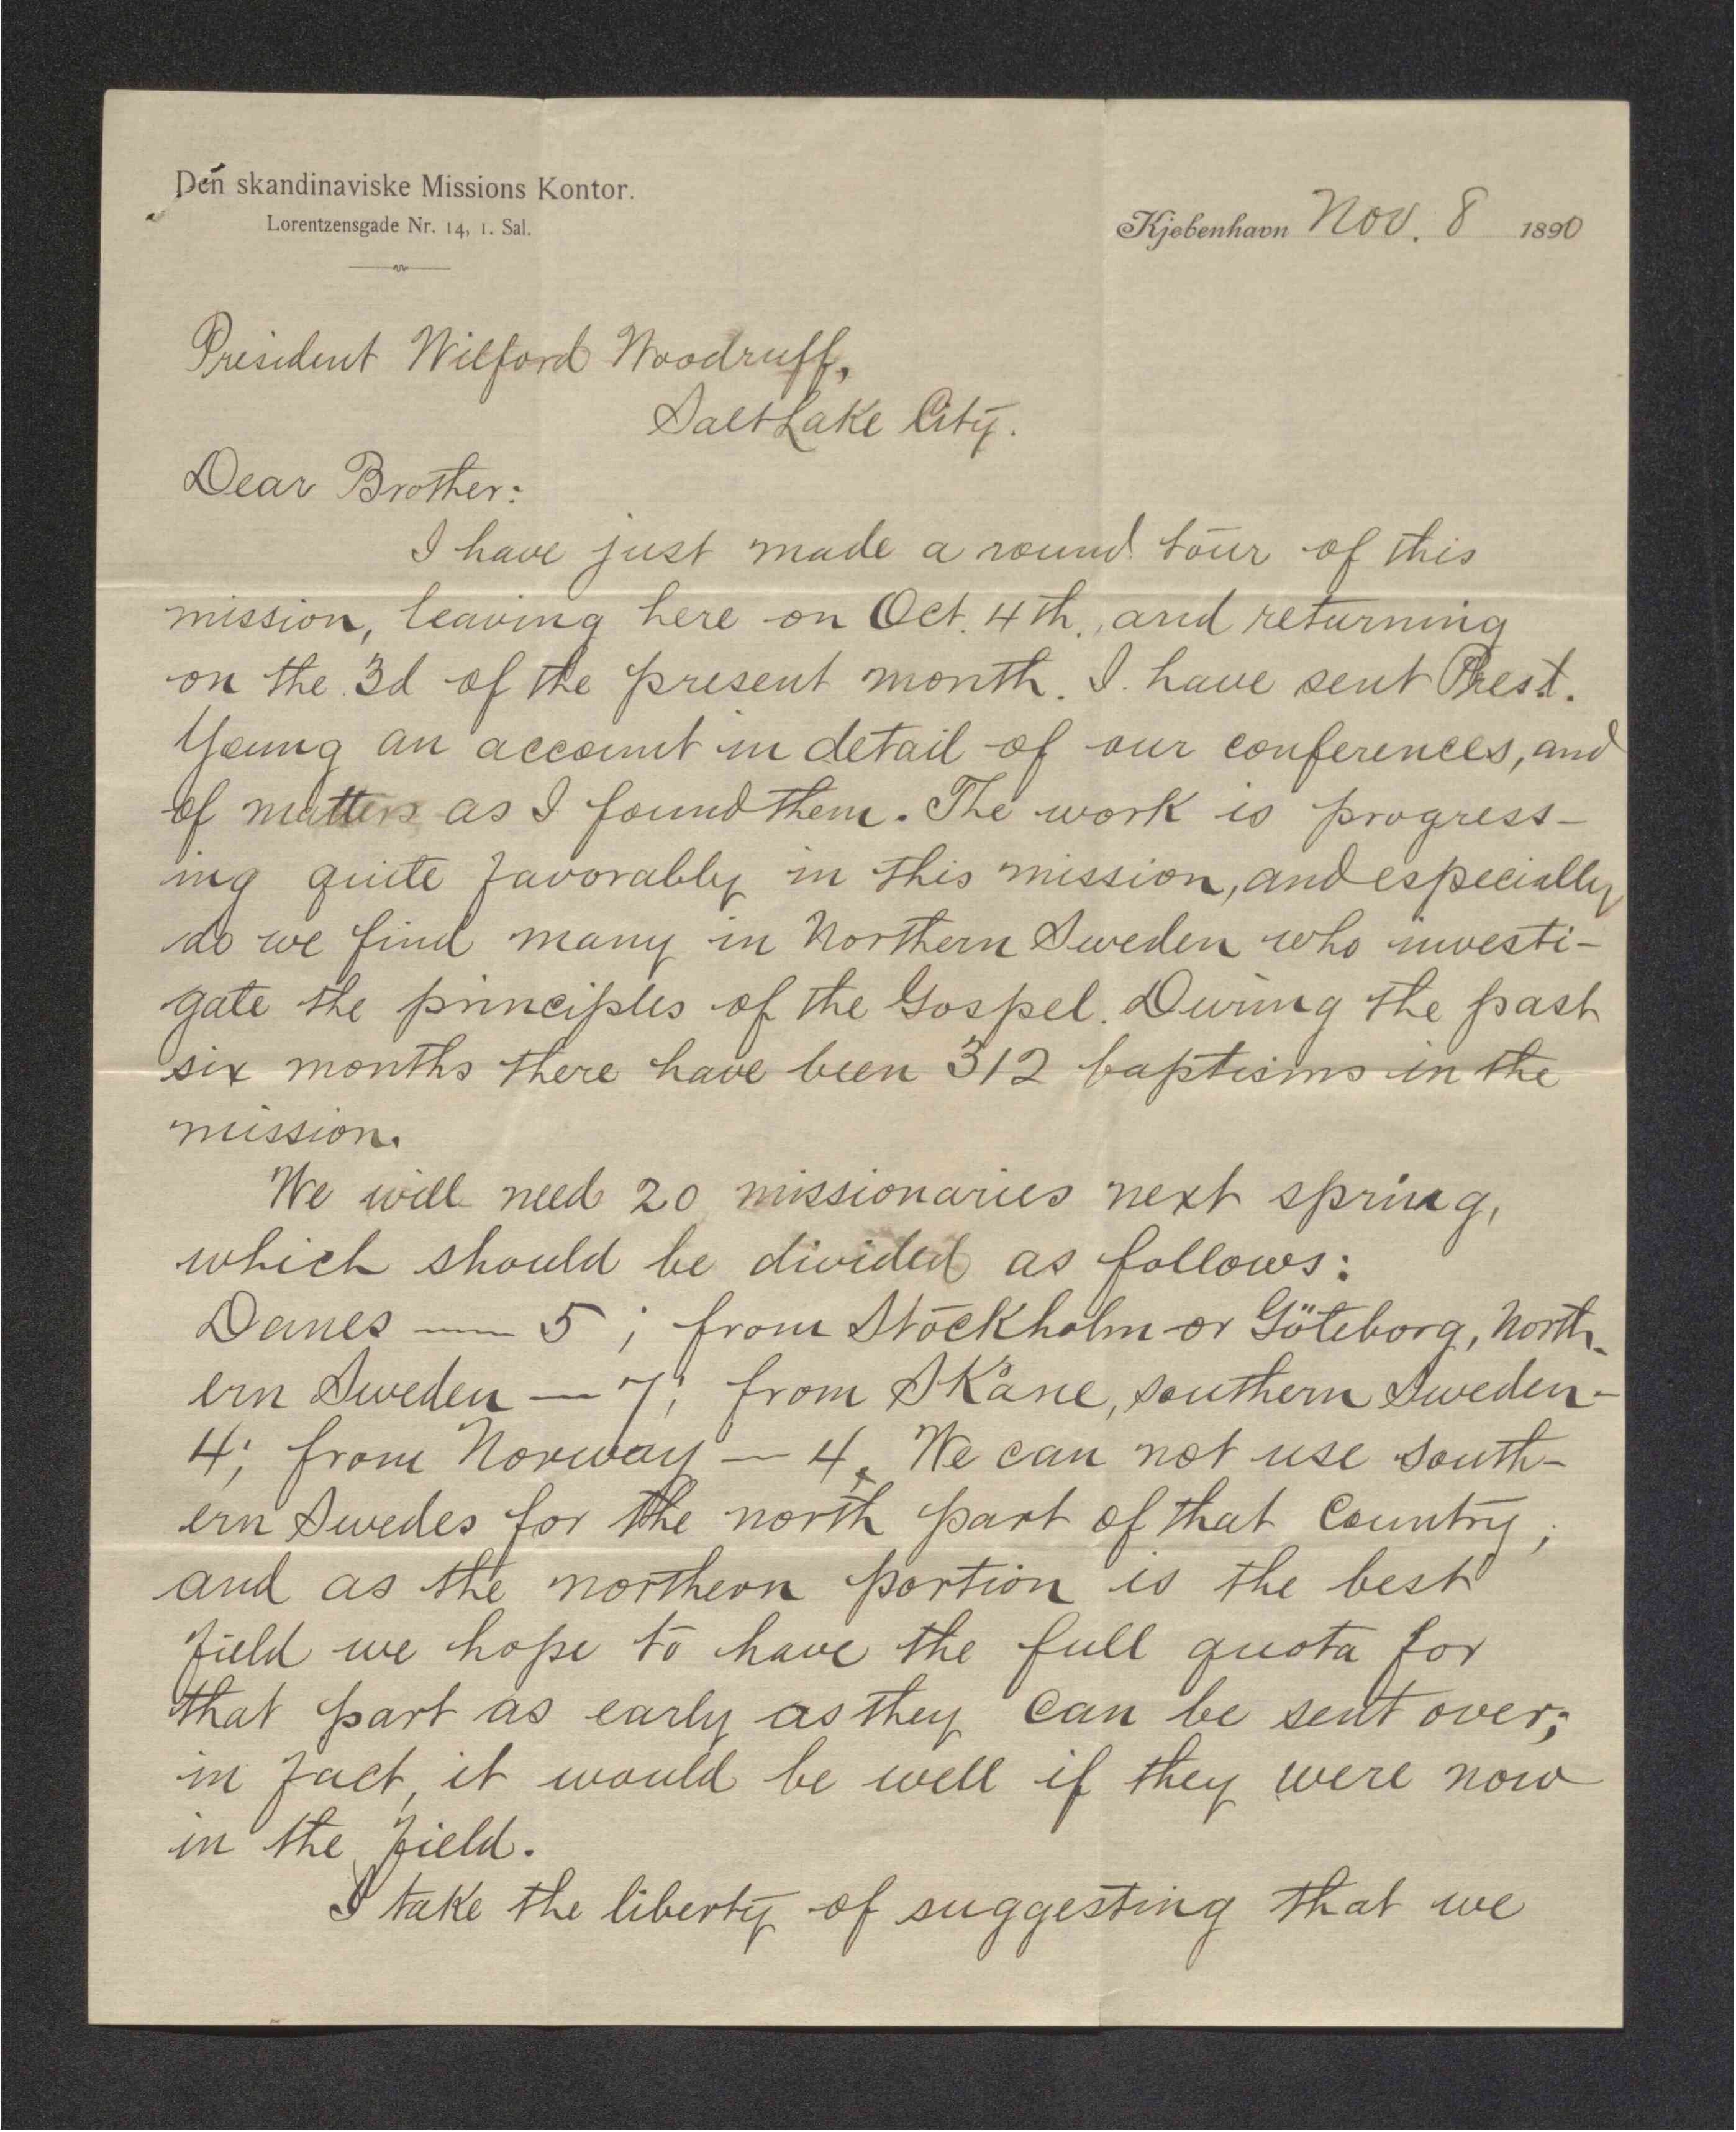 Den skandinaviske Missions Kontor.
Lorentzensgade Nr. 14, 1. Sal.
Kjøbenhavn Nov. 8 1890
President Wilford Woodruff,
Salt Lake City.
Dear Brother:
I have just made a round tour of this
mission, leaving here on Oct. 4th., and returning
on the 3d of the present month. I have sent Prest.
Young an account in detail of our conferences, and
of matters as I found them. The work is progress-
ing quite favorably in this mission, and especially
do we find many in Northern Sweden who investi-
gate the principles of the Gospel. During the past
six months there have been 312 baptisms in the
mission.
We will need 20 missionaries next spring,
which should be divided as follows:
Danes — 5; from Stockholm or Göteborg, North-
ern Sweden — 7; from Skåne, southern Sweden -
4; from Norway — 4. We can not use south-
ern Swedes for the north part of that country;
and as the northern portion is the best
field we hope to have the full quota for
that part as early as they can be sent over;
in fact, it would be well if they were now
in the field.
I take the liberty of suggesting that we